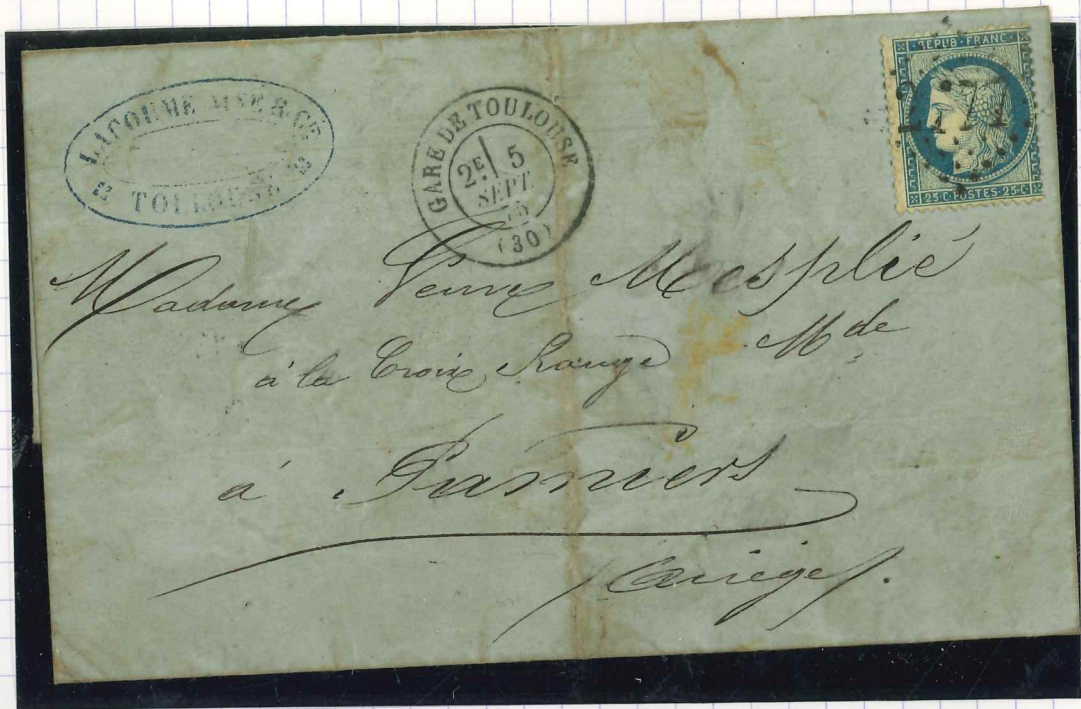 LACOUME AINÉ & CIE
TOULOUSE
GARE DE TOULOUSE
2E 5
SEPT
75
(30)
REPUB·FRANC
25·C·POSTES·25·C
Madame Veuve Mesplié
à la Croix Rouge Mde
à Pamiers
(Ariège).